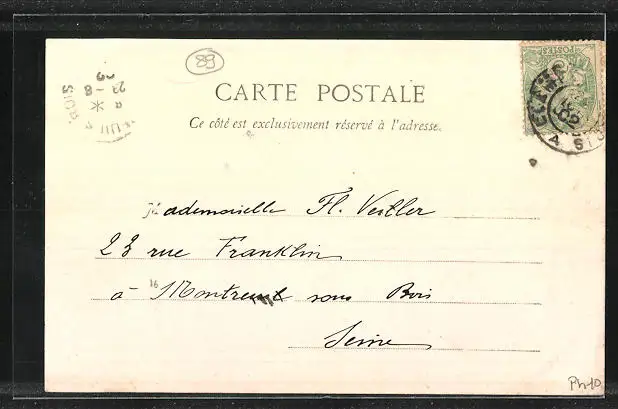 89
CARTE POSTALE
Ce côté est exclusivement réservé à l'adresse.
POSTES
Mademoiselle Fl.
23 rue Franklin
à Montreuil sous Bois
Seine
Ph10